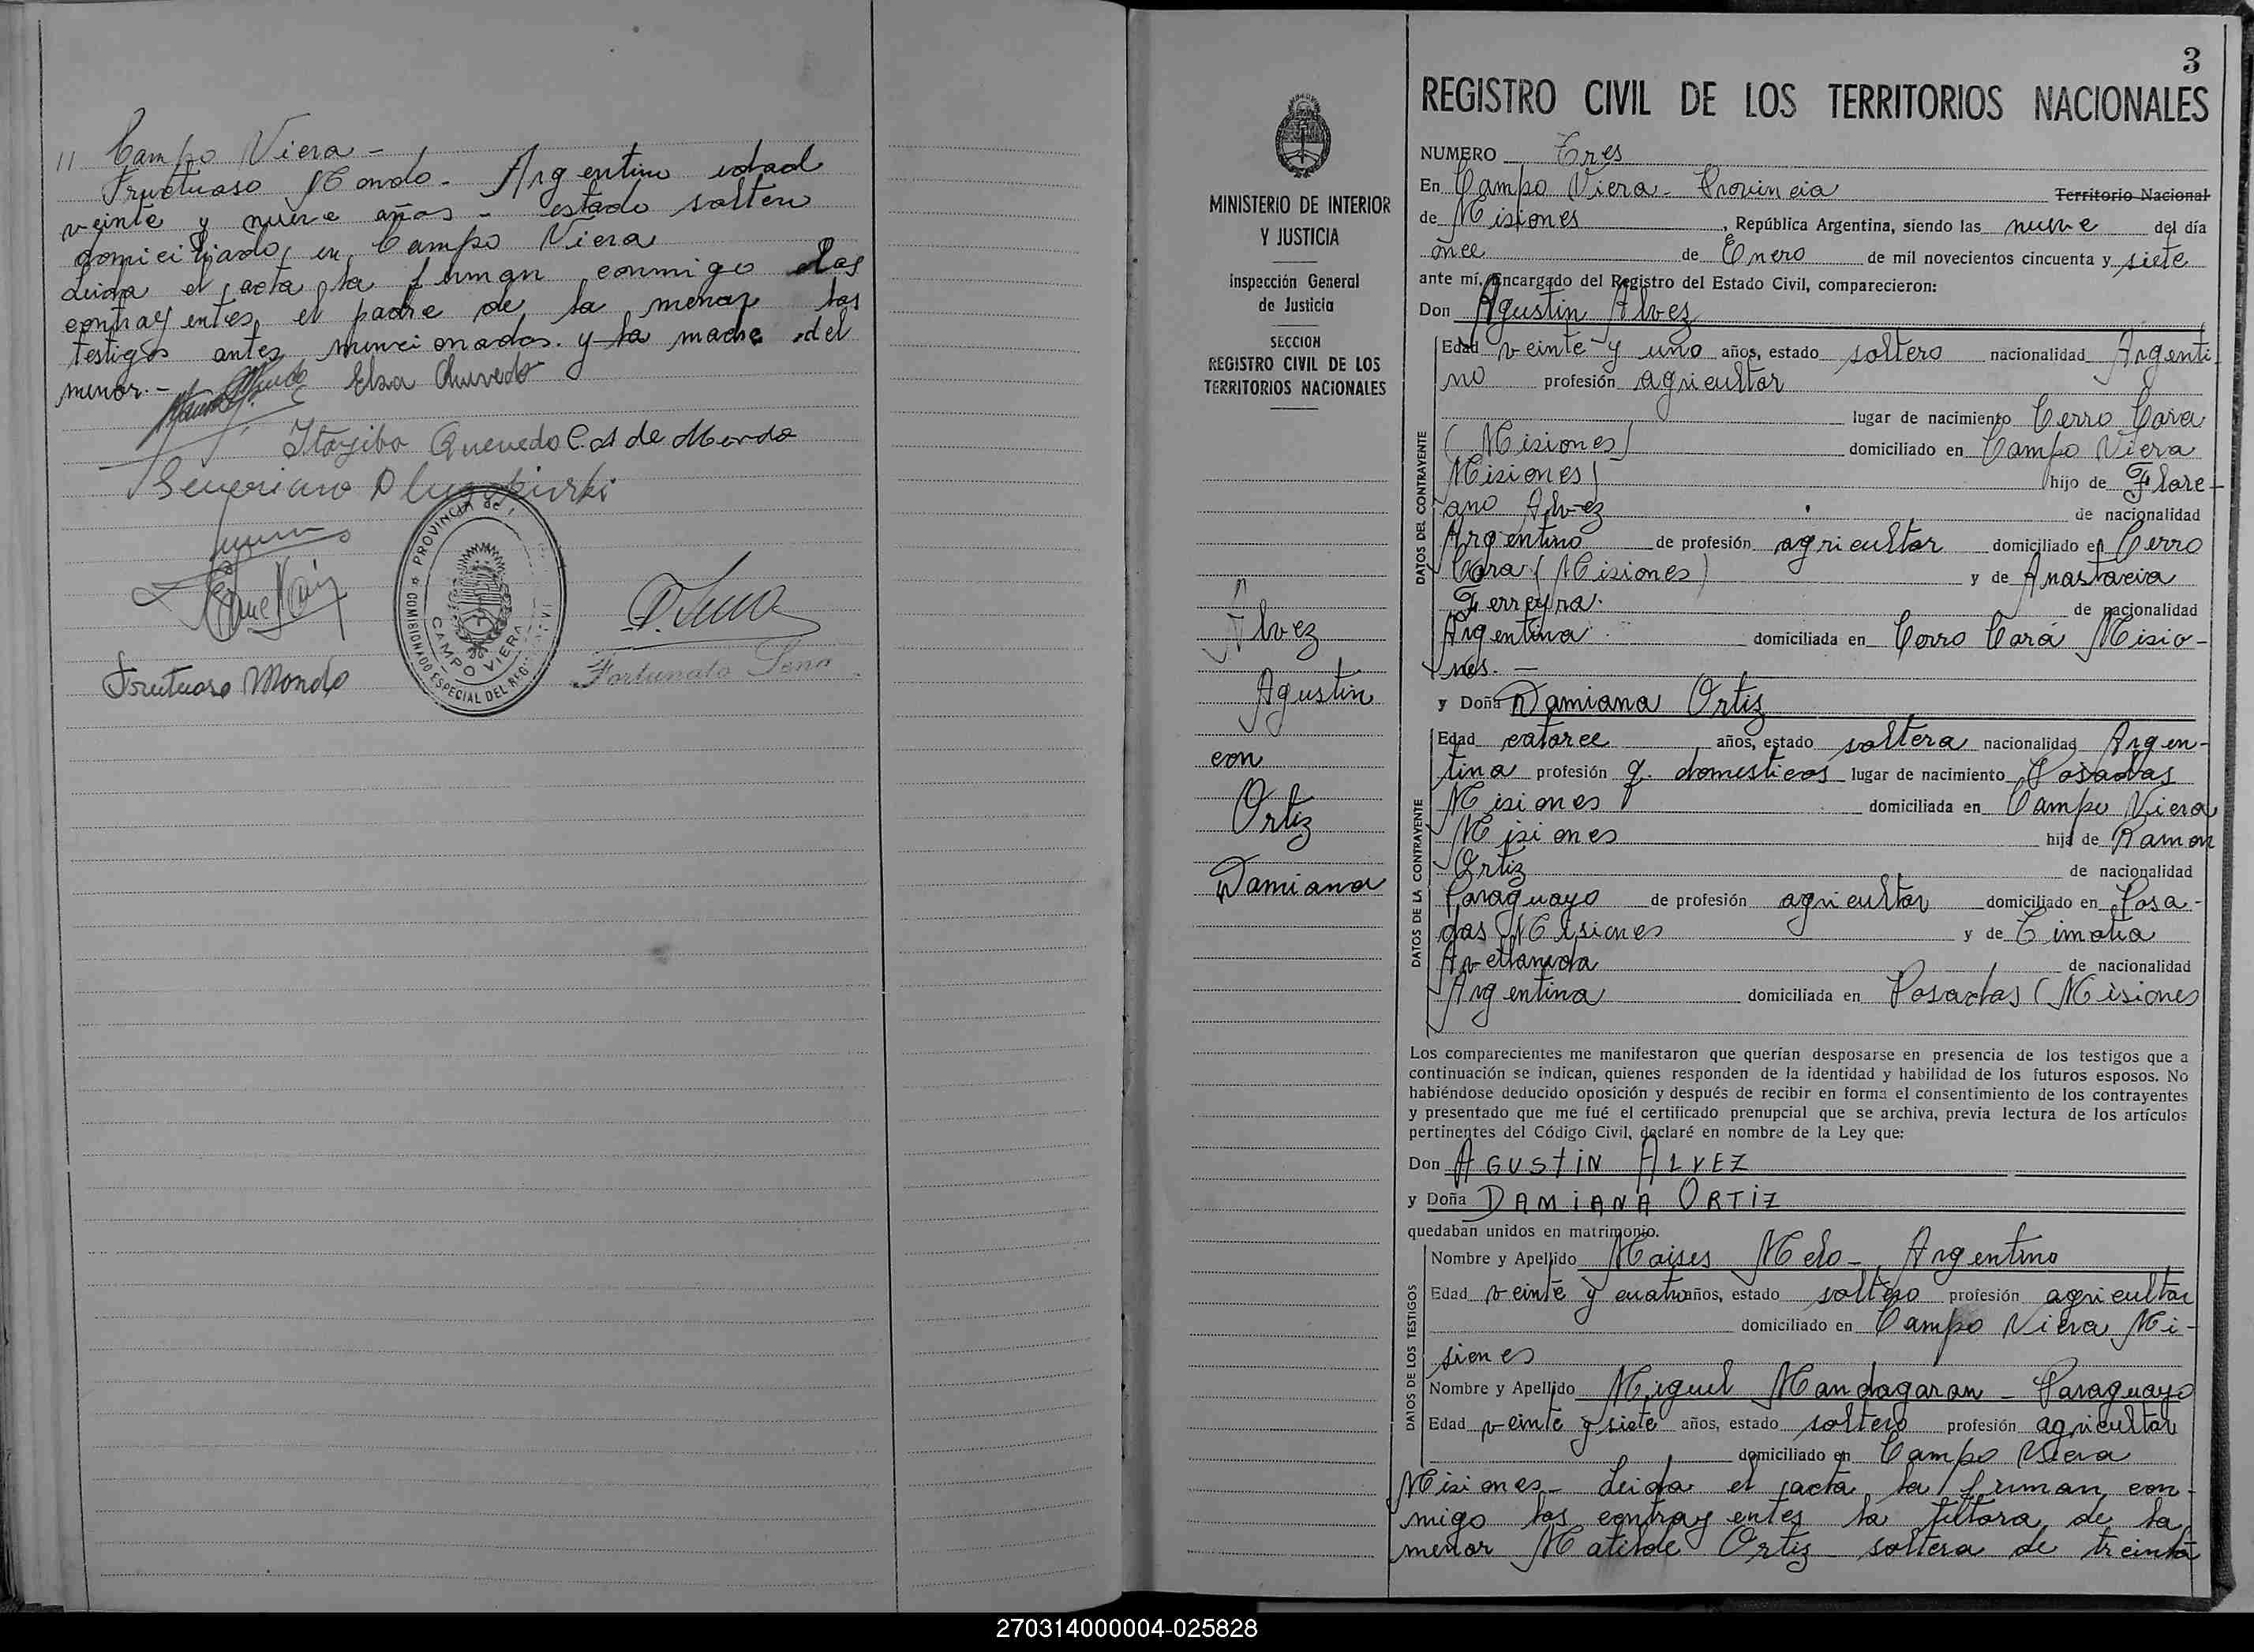 11 Campo Viera -
Fructuoso Mondo - Argentino edad
veinte y nueve años - estado soltero
domiciliado en Campo Viera
Leida el acta la firman conmigo los
contrayentes el padre de la menor los
testigos antes mencionados y la madre del
menor. -
Elsa Quevedo
Itagiba Quevedo C. A de Mondo
Severiano
PROVINCIA de
COMISIONADO ESPECIAL DEL REG
CAMPO VIERA
Fortunato Sena
Frutuoso Mondo
3
REGISTRO CIVIL DE LOS TERRITORIOS NACIONALES
MINISTERIO DE INTERIOR
Y JUSTICIA
Inspección General
de Justicia
SECCION
REGISTRO CIVIL DE LOS
TERRITORIOS NACIONALES
Alvez
Agustin
con
Ortiz
Damiana
NUMERO Tres
En Campo Viera - Provincia Territorio Nacional
de Misiones, República Argentina, siendo las nueve del día
once de Enero de mil novecientos cincuenta y siete
ante mí, Encargado del Registro del Estado Civil, comparecieron:
Don Agustin Alvez
DATOS DEL CONTRAYENTE
Edad veinte y uno años, estado soltero nacionalidad Argenti-
no profesión agricultor
lugar de nacimiento Cerro Cora
(Misiones) domiciliado en Campo Viera
Misiones) hijo de Flore-
ano Alvez de nacionalidad
Argentino de profesión agricultor domiciliado en Cerro
Cora (Misiones) y de Anastacia
Ferreyra. de nacionalidad
Argentina domiciliada en Cerro Cará Misio-
nes. -
y Doña Damiana Ortiz
DATOS DE LA CONTRAYENTE
Edad catorce años, estado soltera nacionalidad Argen-
tina profesión q. domesticos lugar de nacimiento Posadas
Misiones domiciliada en Campo Viera
Misiones hija de Ramon
Ortiz de nacionalidad
Paraguayo de profesión agricultor domiciliado en Posa-
das Misiones y de Timotia
Avellaneda de nacionalidad
Argentina domiciliada en Posadas (Misiones
Los comparecientes me manifestaron que querían desposarse en presencia de los testigos que a
continuación se indican, quienes responden de la identidad y habilidad de los futuros esposos. No
habiéndose deducido oposición y después de recibir en forma el consentimiento de los contrayentes
y presentado que me fué el certificado prenupcial que se archiva, previa lectura de los artículos
pertinentes del Código Civil, declaré en nombre de la Ley que:
Don AGUSTIN ALVEZ
y Doña DAMIANA ORTIZ
quedaban unidos en matrimonio.
DATOS DE LOS TESTIGOS
Nombre y Apellido Moises Melo - Argentino
Edad veinte y cuatro años, estado soltero profesión agricultor
domiciliado en Campo Viera Mi-
siones
Nombre y Apellido Miguel Mandagaran - Paraguayo
Edad veinte y siete años, estado soltero profesión agricultor
domiciliado en Campo Viera
Misiones - Leida el acta la firman con-
migo los contrayentes la tutora de la
menor Matilde Ortiz soltera de treinta
270314000004-025828